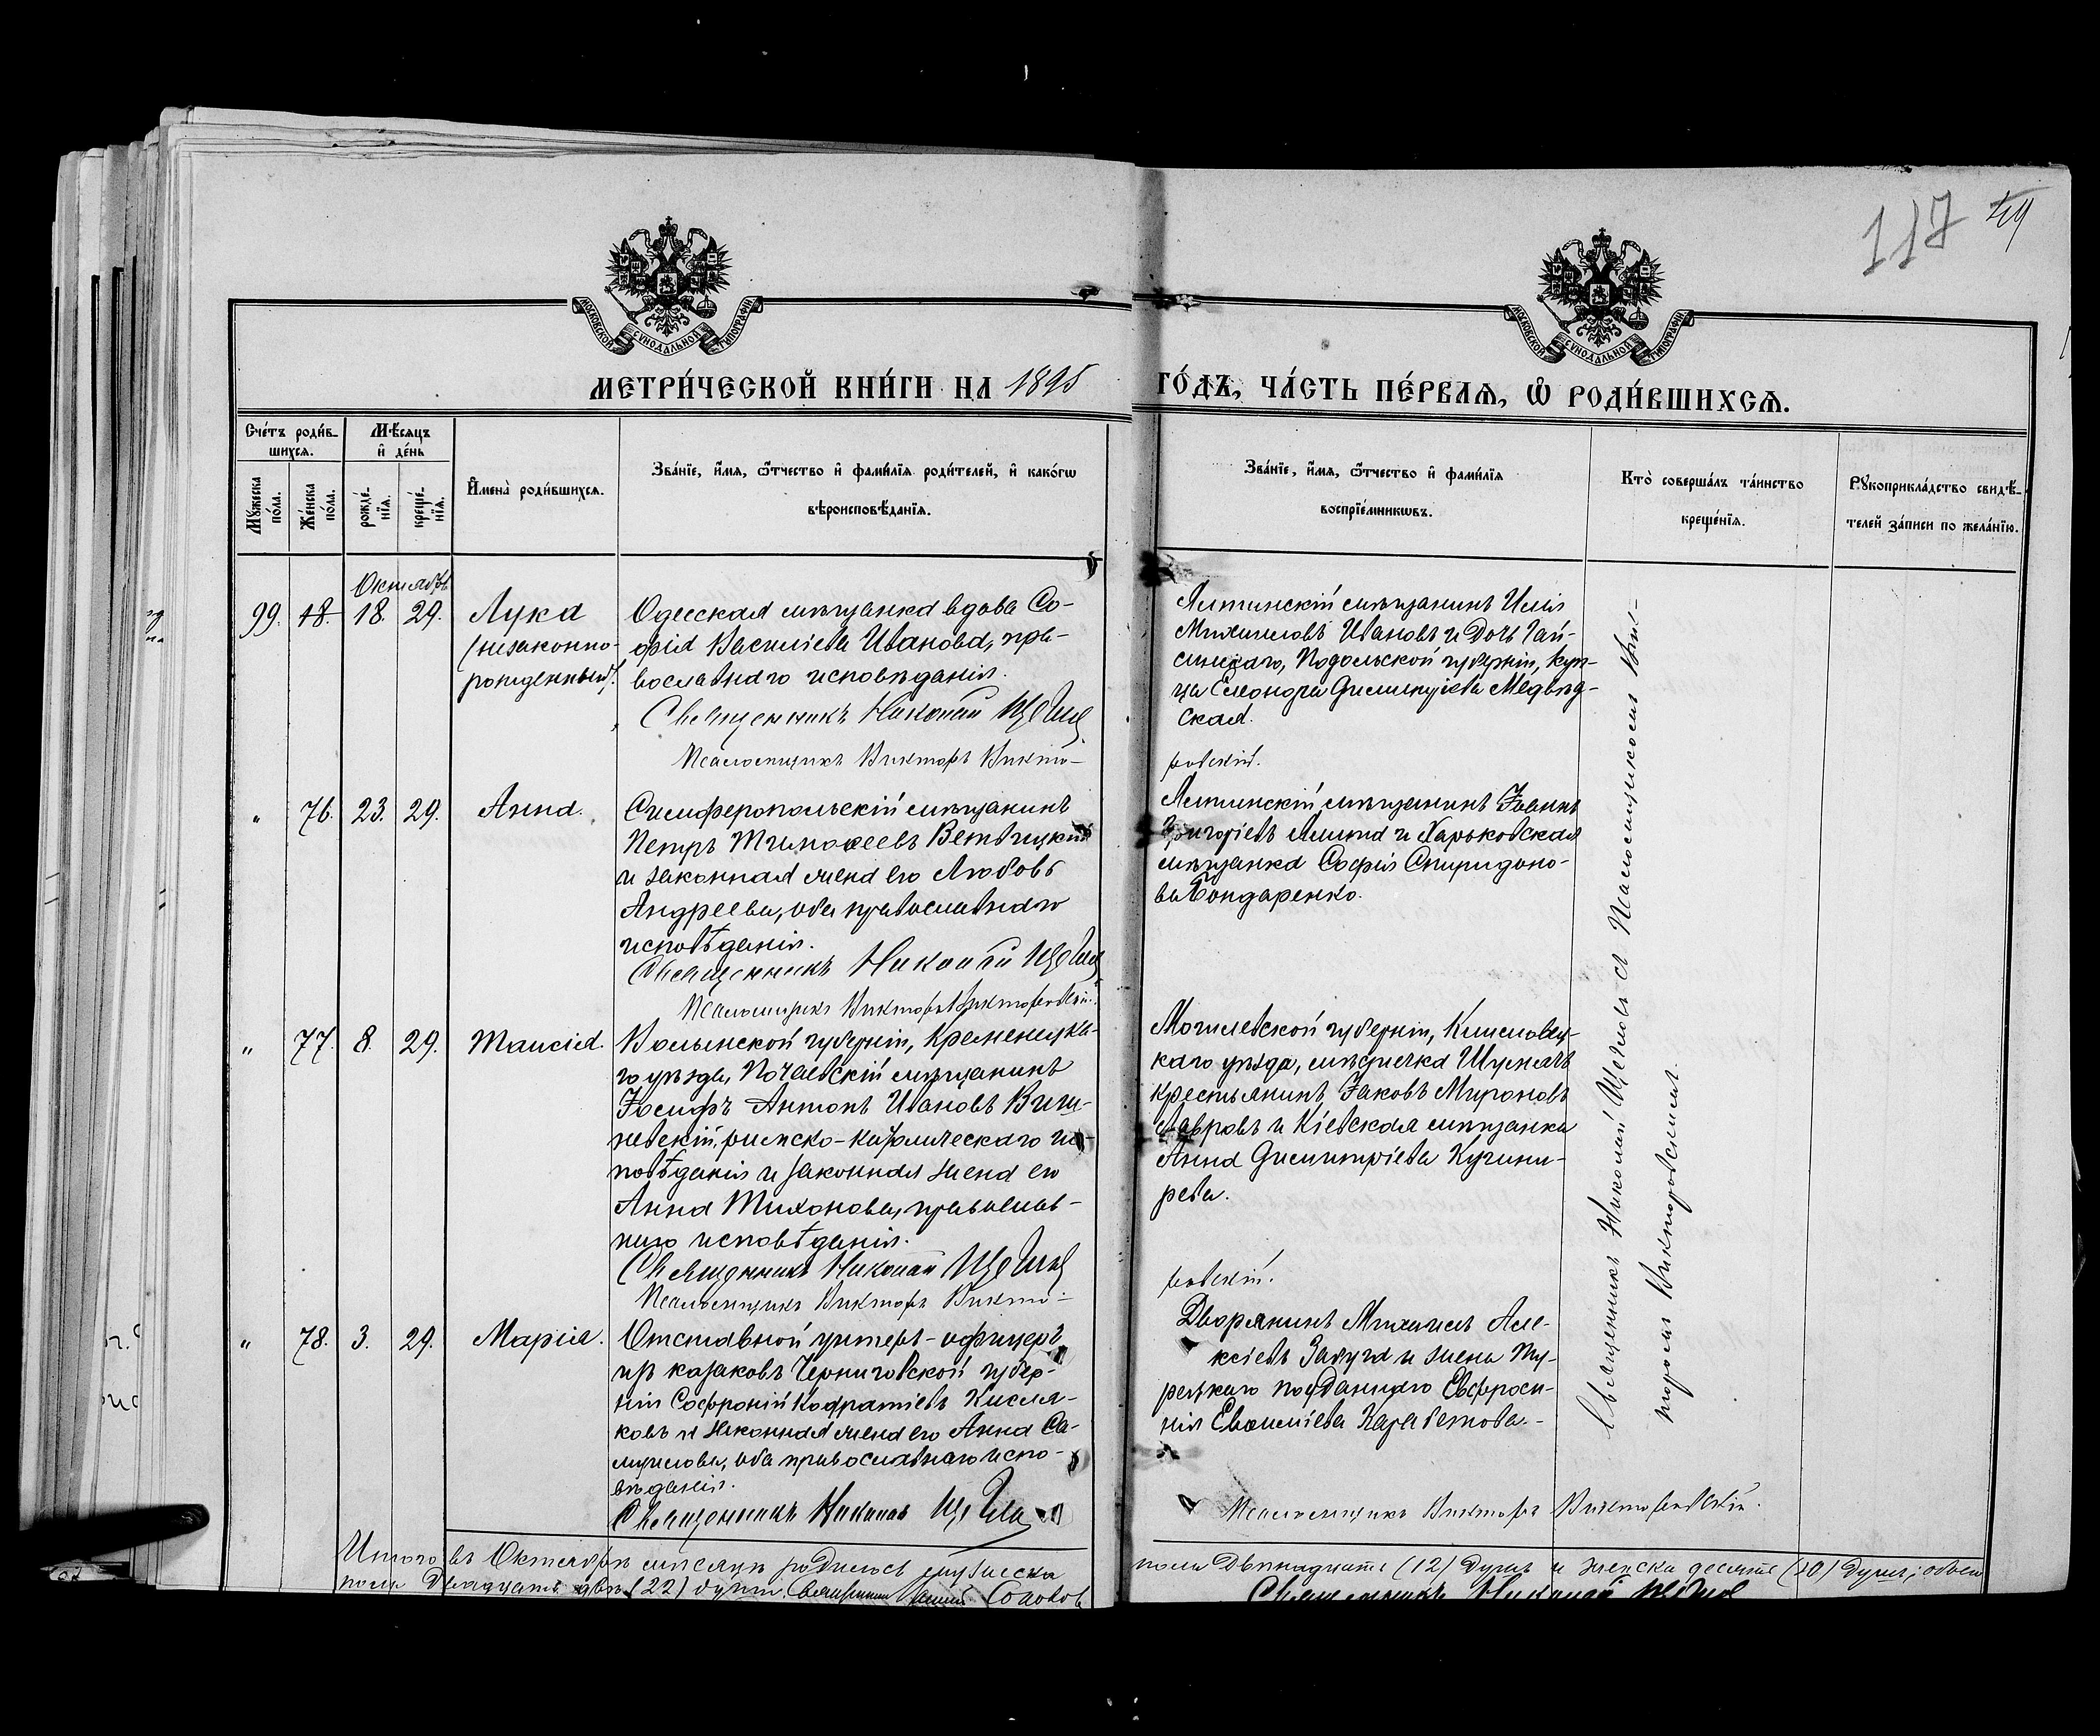 117
МОСКОВСКОЙ СѴНОДАЛЬНОЙ ТИПОГРАФІИ
МОСКОВСКОЙ СѴНОДАЛЬНОЙ ТИПОГРАФІИ
МЕТРИ́ЧЕСКОЙ КНИ́ГИ НА 1895 ГО́ДЪ, ЧА́СТЬ ПЕ́РВАѦ, Ѡ РОДИ́ВШИХСѦ.
Сче́тъ роди́в-
шихсѧ.
Мѣ́сѧцъ
и҆ де́нь
Мꙋ́жеска
по́ла.
Же́нска
по́ла.
рожде́-
нїѧ.
креще́-
нїѧ.
И҆мена̀ роди́вшихсѧ.
Зва́нїе, и҆́мѧ, ѻ҆́тчество и҆ фами́лїѧ роди́телей, и҆ како́гѡ
вѣроисповѣ́данїѧ.
Зва́нїе, и҆́мѧ, ѻ҆́тчество и҆ фами́лїѧ
воспрїе́мникѡвъ.
Кто̀ соверша́лъ та́инство
креще́нїѧ.
Рꙋкоприкла́дство свидѣ́-
телей за́писи по жела́нїю.
Октябрь
99. 18. 18. 29. Лука
(незаконно-
рожденный).
Одесская мѣщанка вдова Со-
фія Васильева Иванова, пра-
вославнаго исповѣданія.
Священникъ Николай Щегловъ
Псаломщикъ Викторъ Викто-
Ялтинскій мѣщанинъ Илія
Михаиловъ Ивановъ и дочь Гай-
синскаго, Подольской губерніи, куп-
ца Елеонора Димитріева Медвѣд-
ская.
ровскій.
" 76. 23. 29. Анна.
Симферопольскій мѣщанинъ
Петръ Тимоѳеевъ Ветвицкій
и законная жена его Любовь
Андреева, оба православнаго
исповѣданія.
Священникъ Николай Щегловъ
Псаломщикъ Викторъ Викторовскій.
Ялтинскій мѣщанинъ Іоаннъ
Григоріевъ и Харьковская
мѣщанка Софія Спиридоно-
ва Бондаренко.
" 77. 8. 29. Таисія.
Волынской губерніи, Кременецка-
го уѣзда, Почаевскій мѣщанинъ
Іосифъ Антонъ Ивановъ Виш-
невскій, римско-католическаго ис-
повѣданія и законная жена его
Анна Тихонова, православ-
наго исповѣданія.
Священникъ Николай Щегловъ
Псаломщикъ Викторъ Викто-
Могилевской губерніи, Климовец-
каго уѣзда, мѣстечка Шумячъ
крестьянинъ Іаковъ Мироновъ
Лавровъ и Кіевская мѣщанка
Анна Димитріева Кушни-
рева.
ровскій.
" 78. 3. 29. Марія.
Отставной унтеръ-офицеръ
изъ казаковъ Черниговской губер-
ніи Софроній Кодратіевъ Кисля-
ковъ и законная жена его Анна Са-
муилова, оба православнаго испо-
вѣданія.
Священникъ Николай Щегловъ
Дворянинъ Михаилъ Але-
ксіевъ и жена Ту-
рецкаго подданнаго Евфроси-
нія Карабетова.
Псаломщикъ Викторъ Викторовскій.
Священникъ Николай Щегловъ съ Псаломщикомъ Вик-
торомъ Викторовскимъ.
Итого въ Октябрѣ мѣсяцѣ родилось мужеска пола двѣнадцать (12) душъ и женска десять (10) душъ; обоего
пола двадцать двѣ (22) души. Священникъ Соколовъ
Священникъ Николай Щегловъ